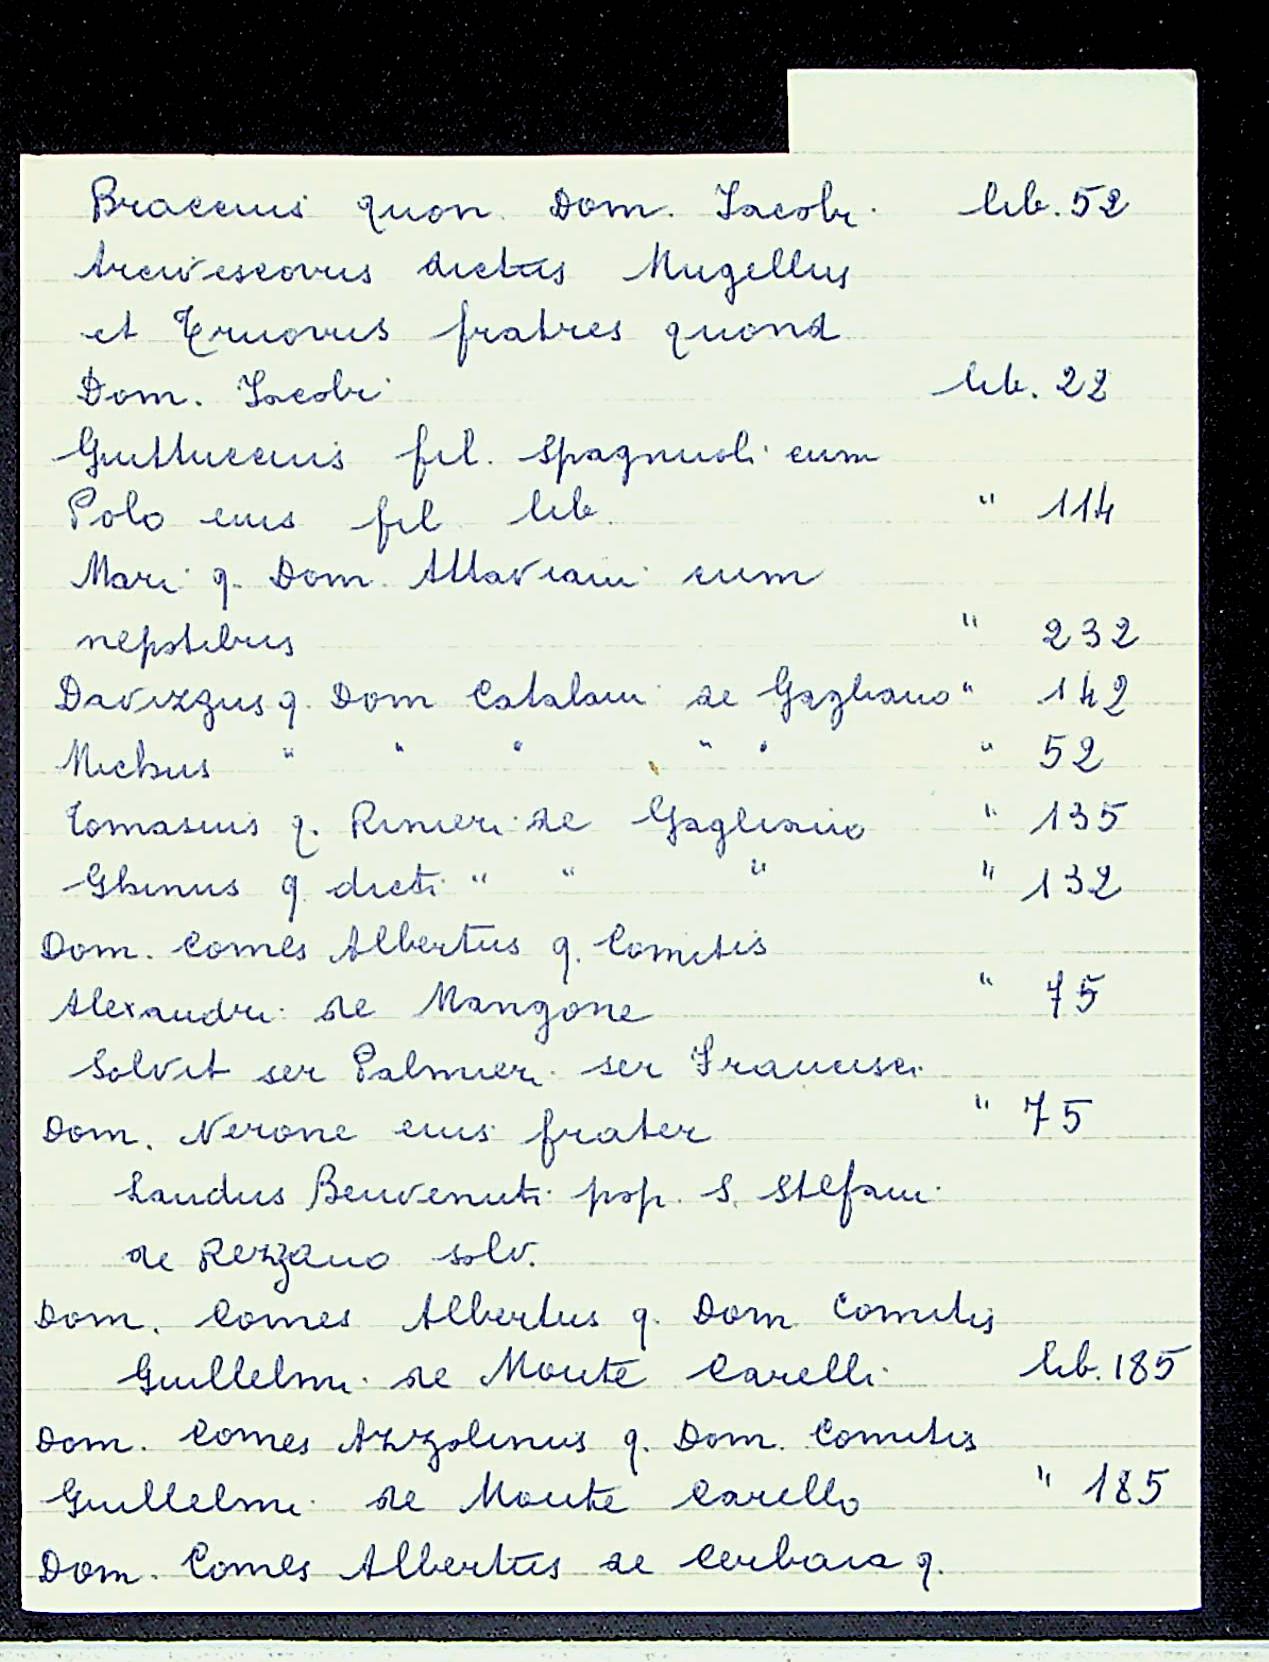 Braccius quon. Dom. Iacobi lib. 52
Arcivescovus dictus Mugellus
et Truovus fratres quond
Dom. Iacobi lib. 22
Guttuccius fil. Spagnuoli cum
Polo eius fil lib. " 114
Mari q. Dom. Attaviani cum
nepotibus " 232
Davizzus q. Dom Catalani de Gagliano " 142
Michus " " " " " " 52
Tomasius q. Rinieri de Gagliano " 135
Ghinus q. dicti " " " " 132
Dom. Comes Albertus q. Comitis
Alexandri de Mangone " 75
Solvit ser Palmieri ser Francisci
Dom. Nerone eius frater " 75
Landus Benvenuti pop. S. Stefani
de Rezzano solv.
Dom. Comes Albertus q. Dom Comitis
Guillelmi de Monte Carelli lib. 185
Dom. Comes Azzolinus q. Dom. Comitis
Guillelmi de Monte Carello " 185
Dom. Comes Albertus de Cerbaia q.